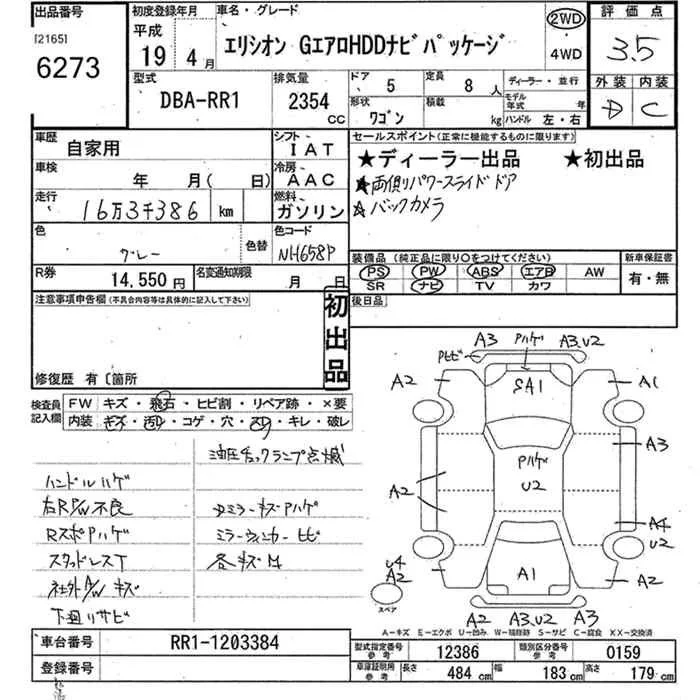 出品番号
[2165]
6273
初度登録年月
平成
19 4月
車名・グレード
エリシオン GエアロHDDナビパッケージ
2WD
・
4WD
評価点
3.5
外装 内装
D C
型式
DBA-RR1
排気量
2354
CC
ドア 5
形状
ワゴン
定員 8人
積載
kg
ディーラー・並行
モデル年式 年
ハンドル 左・右
車歴
自家用
車検
年 月( 日)
走行
16万3千386 km
シフト
IAT
冷房
AAC
燃料
ガソリン
色
グレー
色替
色コード
NH658P
R券
14,550円
名変通知期限
月 日
セールスポイント(正常に機能するものに限ります)
★ディーラー出品 ★初出品
★両側パワースライドドア
★バックカメラ
装備品(純正品に限り○をつけてください)
PS PW ABS エアB AW
SR ナビ TV カワ
新車保証書
有・無
後日品
注意事項申告欄(不具合内容等は具体的に記入して下さい)
初出品
修復歴 有〔箇所
検査員記入欄
FW キズ・飛石・ヒビ割・リペア跡・×要
内装 キズ・汚レ・コゲ・穴・スリ・キレ・破レ
油圧チェックランプ点滅
ハンドルハゲ
右RP/W不良
RスポPハゲ
スタッドレスT
社外A/Wキズ
下廻リサビ
ドミラーキズPハゲ
ミラーウィンカーヒビ
各キズ凹
A3 Pハゲ A3.U2
Pヒビ
A2 SA1 A1
A3
Pハゲ
U2
A2
A4
U2
U4
A2
スペア
A1
A2
A2 A3.U2 A3
A-キズ E-エクボ U-凹み W-補修跡 S-サビ C-腐食 XX-交換済
車台番号
RR1-1203384
登録番号
型式指定番号
参考
12386
類別区分番号
参考
0159
車庫証明用
参考
長さ 484 cm
幅 183 cm
高さ 179 cm